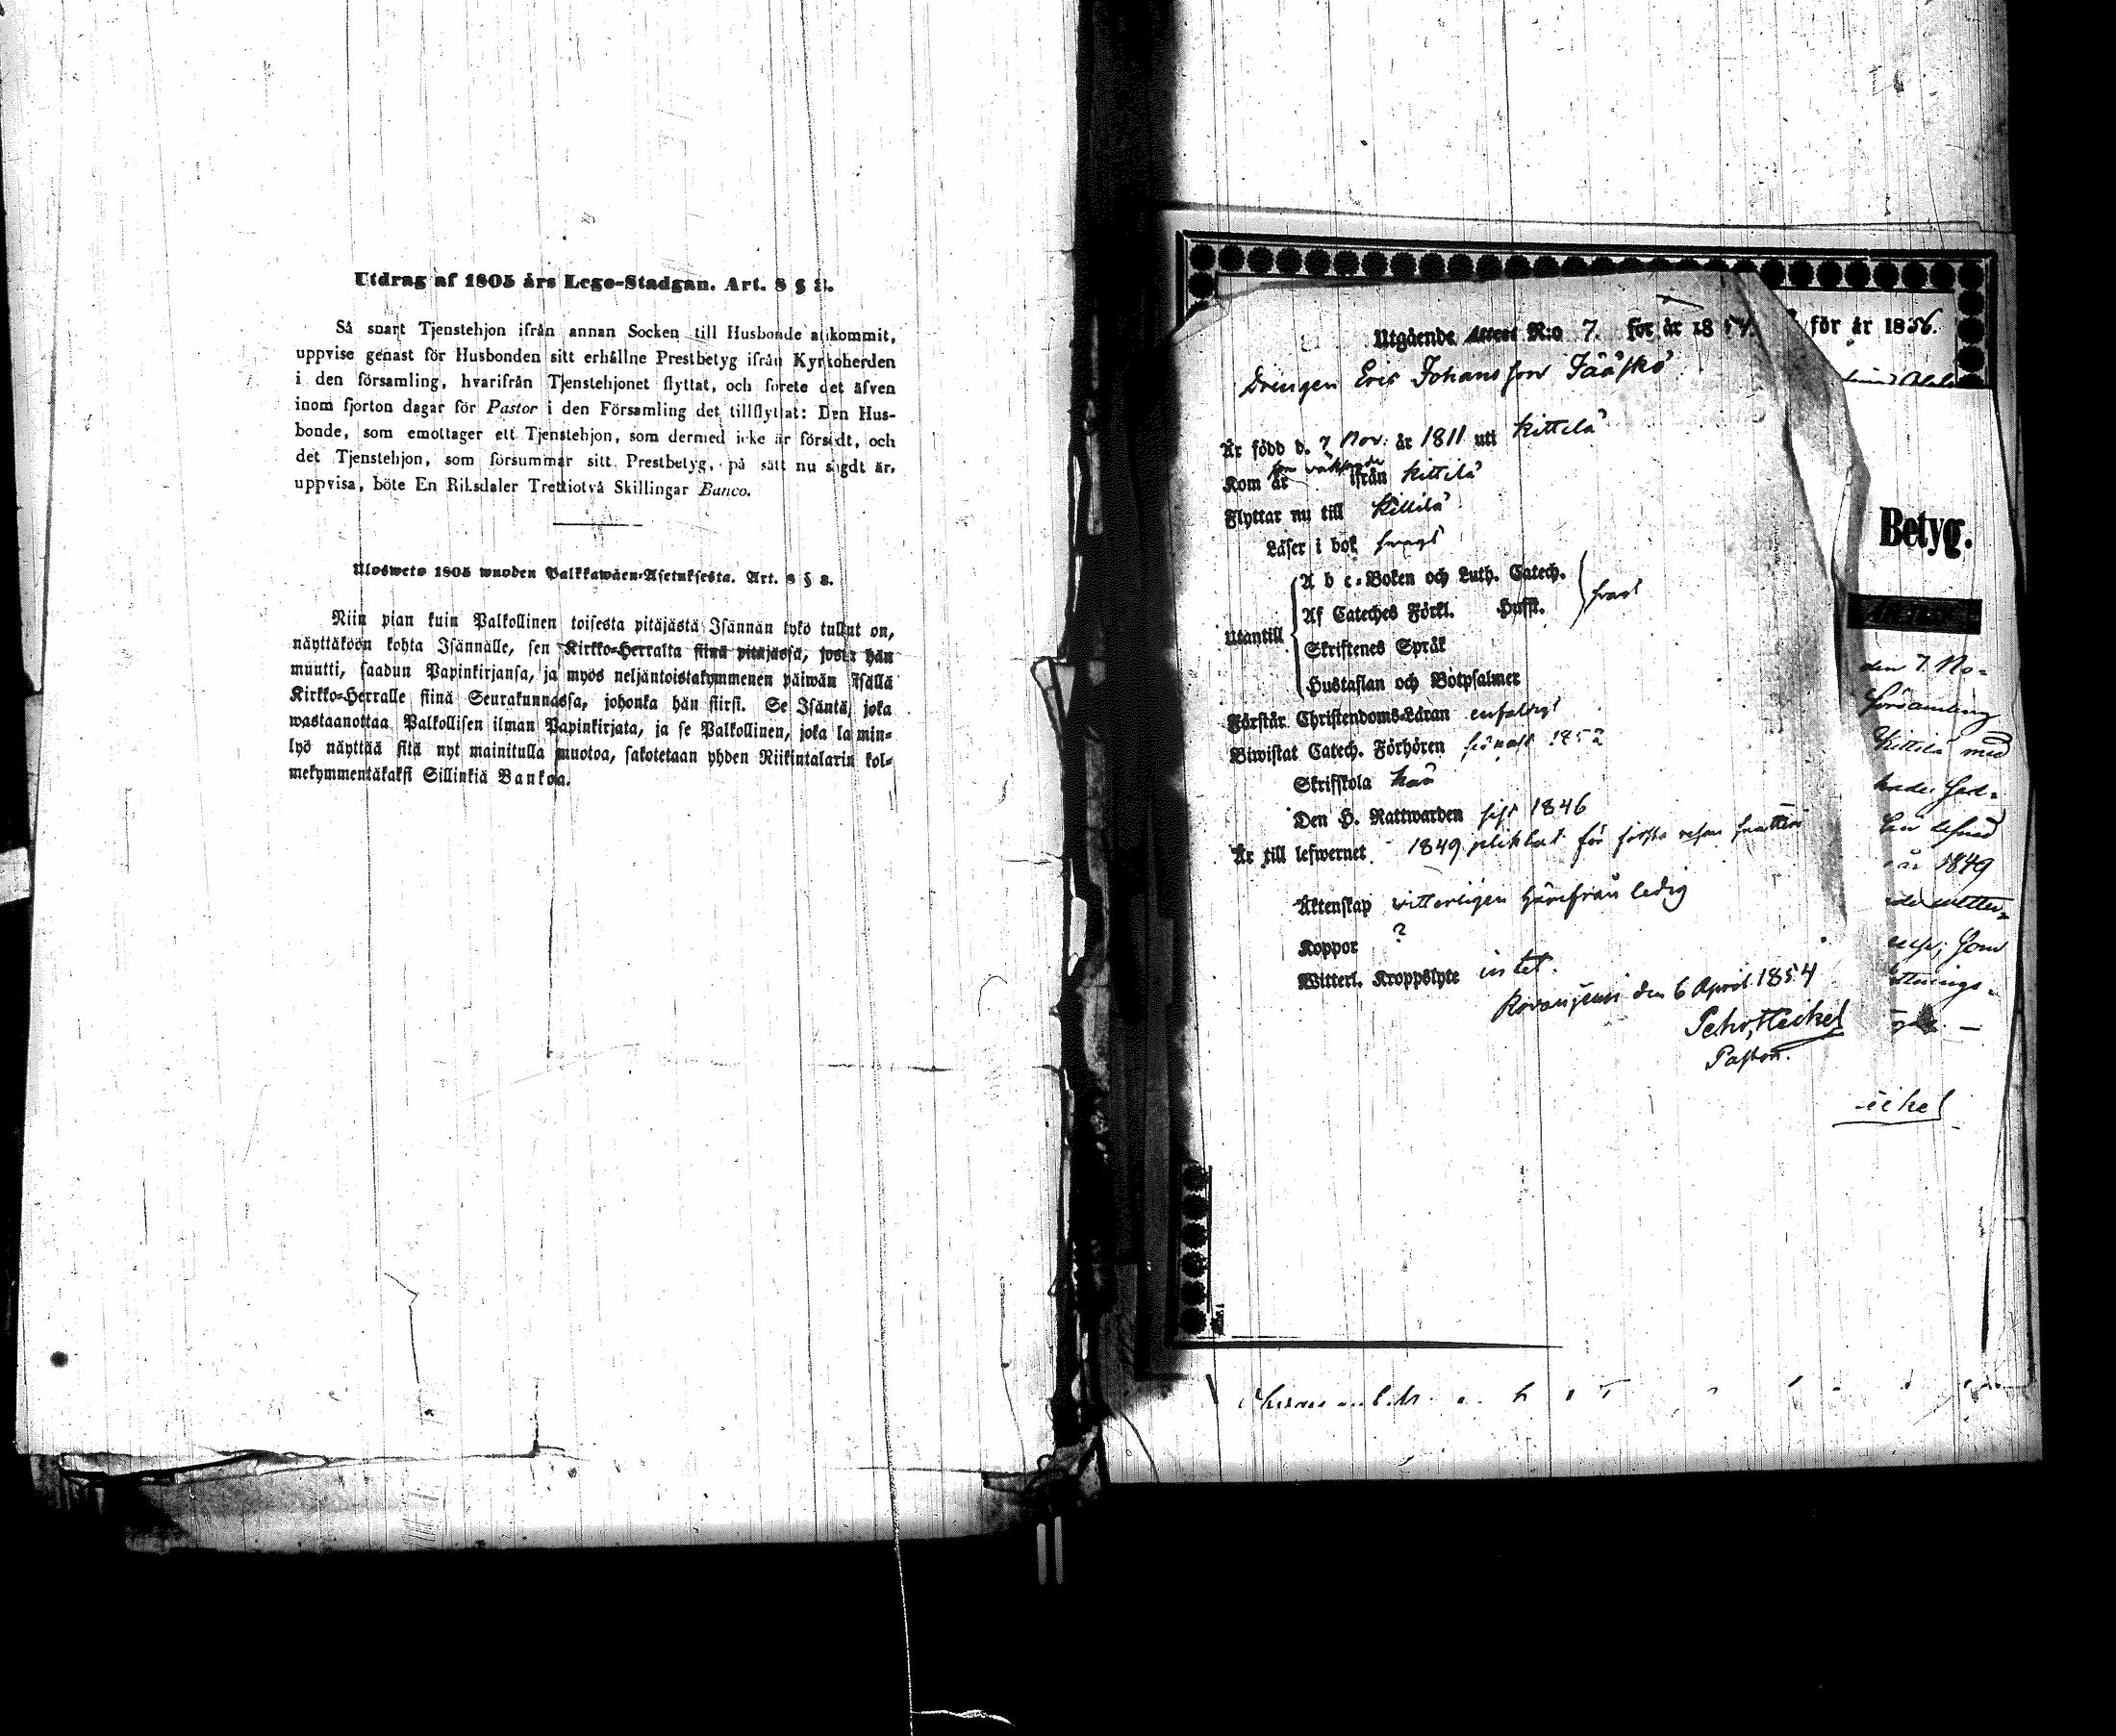 Utdrag af 1805 års Lego-Stadgan. Art. 8 § 8.
Så snart Tjenstehjon ifrån annan Socken till Husbonde ankommit,
uppvise genast för Husbonden sitt erhållne Prestbetyg ifrån Kyrkoherden
i den församling, hvarifrån Tjenstehjonet flyttat, och förete det äfven
inom fjorton dagar för Pastor i den Församling det tillflyttat: Den Hus-
bonde, som emottager ett Tjenstehjon, som dermed icke är försedt, och
det Tjenstehjon, som försummar sitt Prestbetyg, på sätt nu sagdt är,
uppvisa, böte En Riksdaler Trettiotvå Skillingar Banco.
Ulosweto 1805 wuoden Palkkawäen-Asetuksesta. Art. 8 § 8.
Niin pian kuin Palkollinen toisesta pitäjästä Isännän tykö tullut on,
näyttäköön kohta Isännälle, sen Kirkko-Herralta siinä pitäjässä, josta hän
muutti, saadun Papinkirjansa, ja myös neljäntoistakymmenen päiwän sisällä
Kirkko-Herralle siinä Seurakunnassa, johonka hän siirsi. Se Isäntä, joka
wastaanottaa Palkollisen ilman Papinkirjata, ja se Palkollinen, joka laimin-
lyö näyttää sitä nyt mainitulla muotoa, sakotetaan yhden Riikintalarin kol-
mekymmentäkaksi Sillinkiä Bankoa.
Utgående Attest N:o 7. för år 1854.
Drengen Eric Johansson Jääskö
Är född d. 7 Nov. år 1811 uti Kittilä
Kom år ifrån Kittilä
Flyttar nu till Kittilä
Läser i bok svagt
Utantill
A b c-Boken och Luth. Catech.
Af Cateches Förkl. Hufst.
Skriftenes Språk
Hustaflan och Botpsalmer
svart
Förstår Christendoms-Läran enfaldigt
Biwistat Catech. Förhören senast 1852
Skriftskola
Den H. Nattwarden sist 1846
Är till lefwernet 1849 pliktat för första resan
Äktenskap vitterligen härifrån ledig
Koppor ?
Witterl. Kroppslyte intet.
Rovaniemi den 6 April 1854
Pehr Heikel
Pastor.
för år 1856.
Betyg.
den 7 No-
församling
Kittilä med
år 1849
som
ttnings-
eikel